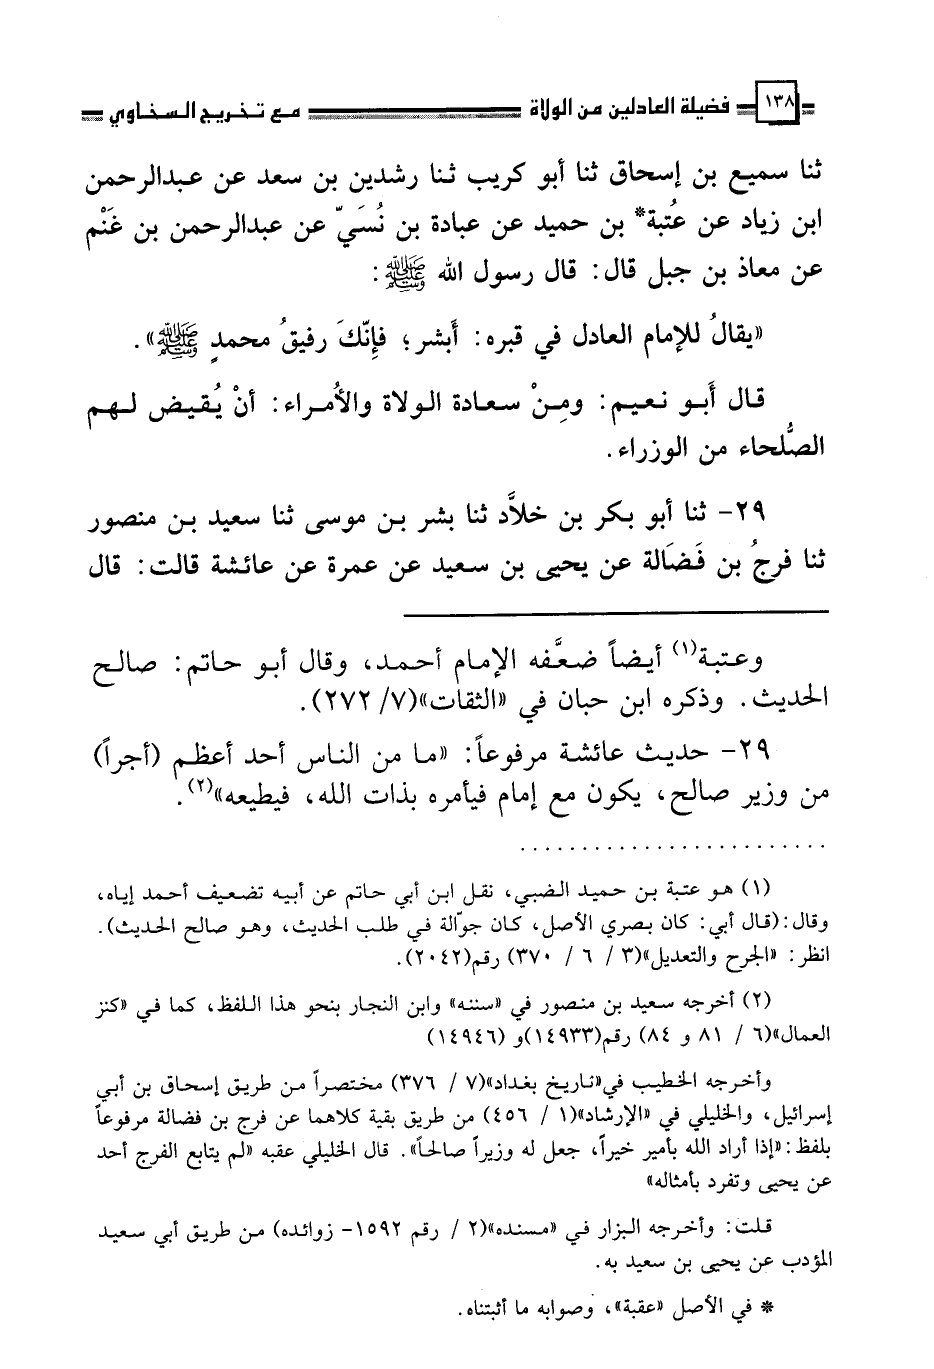 ١٣٨ فضيلة العادلين من الولاة مع تخريج السخاوي
ثنا سميع بن إسحاق ثنا أبو كريب ثنا رشدين بن سعد عن عبدالرحمن
ابن زياد عن عُتبة* بن حميد عن عبادة بن نُسَيّ عن عبدالرحمن بن غَنْم
عن معاذ بن جبل قال: قال رسول الله ﷺ:
«يقالُ للإمام العادل في قبره: أَبشر؛ فإِنّكَ رفيقُ محمدٍ ﷺ».
قال أَبو نعيم: ومِنْ سعادة الولاة والأُمراء: أنْ يُقيض لهم
الصُّلحاء من الوزراء.
٢٩- ثنا أبو بكر بن خلاَّد ثنا بشر بن موسى ثنا سعيد بن منصور
ثنا فرجُ بن فَضَالة عن يحيى بن سعيد عن عمرة عن عائشة قالت: قال
وعتبة(١) أيضاً ضعَّفه الإمام أحمد، وقال أبو حاتم: صالح
الحديث. وذكره ابن حبان في «الثقات»(٧/ ٢٧٢).
٢٩- حديث عائشة مرفوعاً: «ما من الناس أحد أعظم (أجراً)
من وزير صالح، يكون مع إمام فيأمره بذات الله، فيطيعه»(٢).
(١) هو عتبة بن حميد الضبي، نقل ابن أبي حاتم عن أبيه تضعيف أحمد إياه،
وقال:(قال أبي: كان بصري الأصل، كان جوّالة في طلب الحديث، وهو صالح الحديث).
انظر: «الجرح والتعديل»(٣ / ٦ / ٣٧٠) رقم(٢٠٤٢).
(٢) أخرجه سعيد بن منصور في «سننه» وابن النجار بنحو هذا اللفظ، كما في «كنز
العمال»(٦ / ٨١ و ٨٤) رقم(١٤٩٣٣)و (١٤٩٤٦)
وأخرجه الخطيب في«تاريخ بغداد»(٧ / ٣٧٦) مختصراً من طريق إسحاق بن أبي
إسرائيل، والخليلي في «الإرشاد»(١ / ٤٥٦) من طريق بقية كلاهما عن فرج بن فضالة مرفوعاً
بلفظ:«إذا أراد الله بأمير خيراً، جعل له وزيراً صالحاً». قال الخليلي عقبه «لم يتابع الفرج أحد
عن يحيى وتفرد بأمثاله»
قلت: وأخرجه البزار في «مسنده»(٢ / رقم ١٥٩٢- زوائده) من طريق أبي سعيد
المؤدب عن يحيى بن سعيد به.
* في الأصل «عقبة»، وصوابه ما أثبتناه.